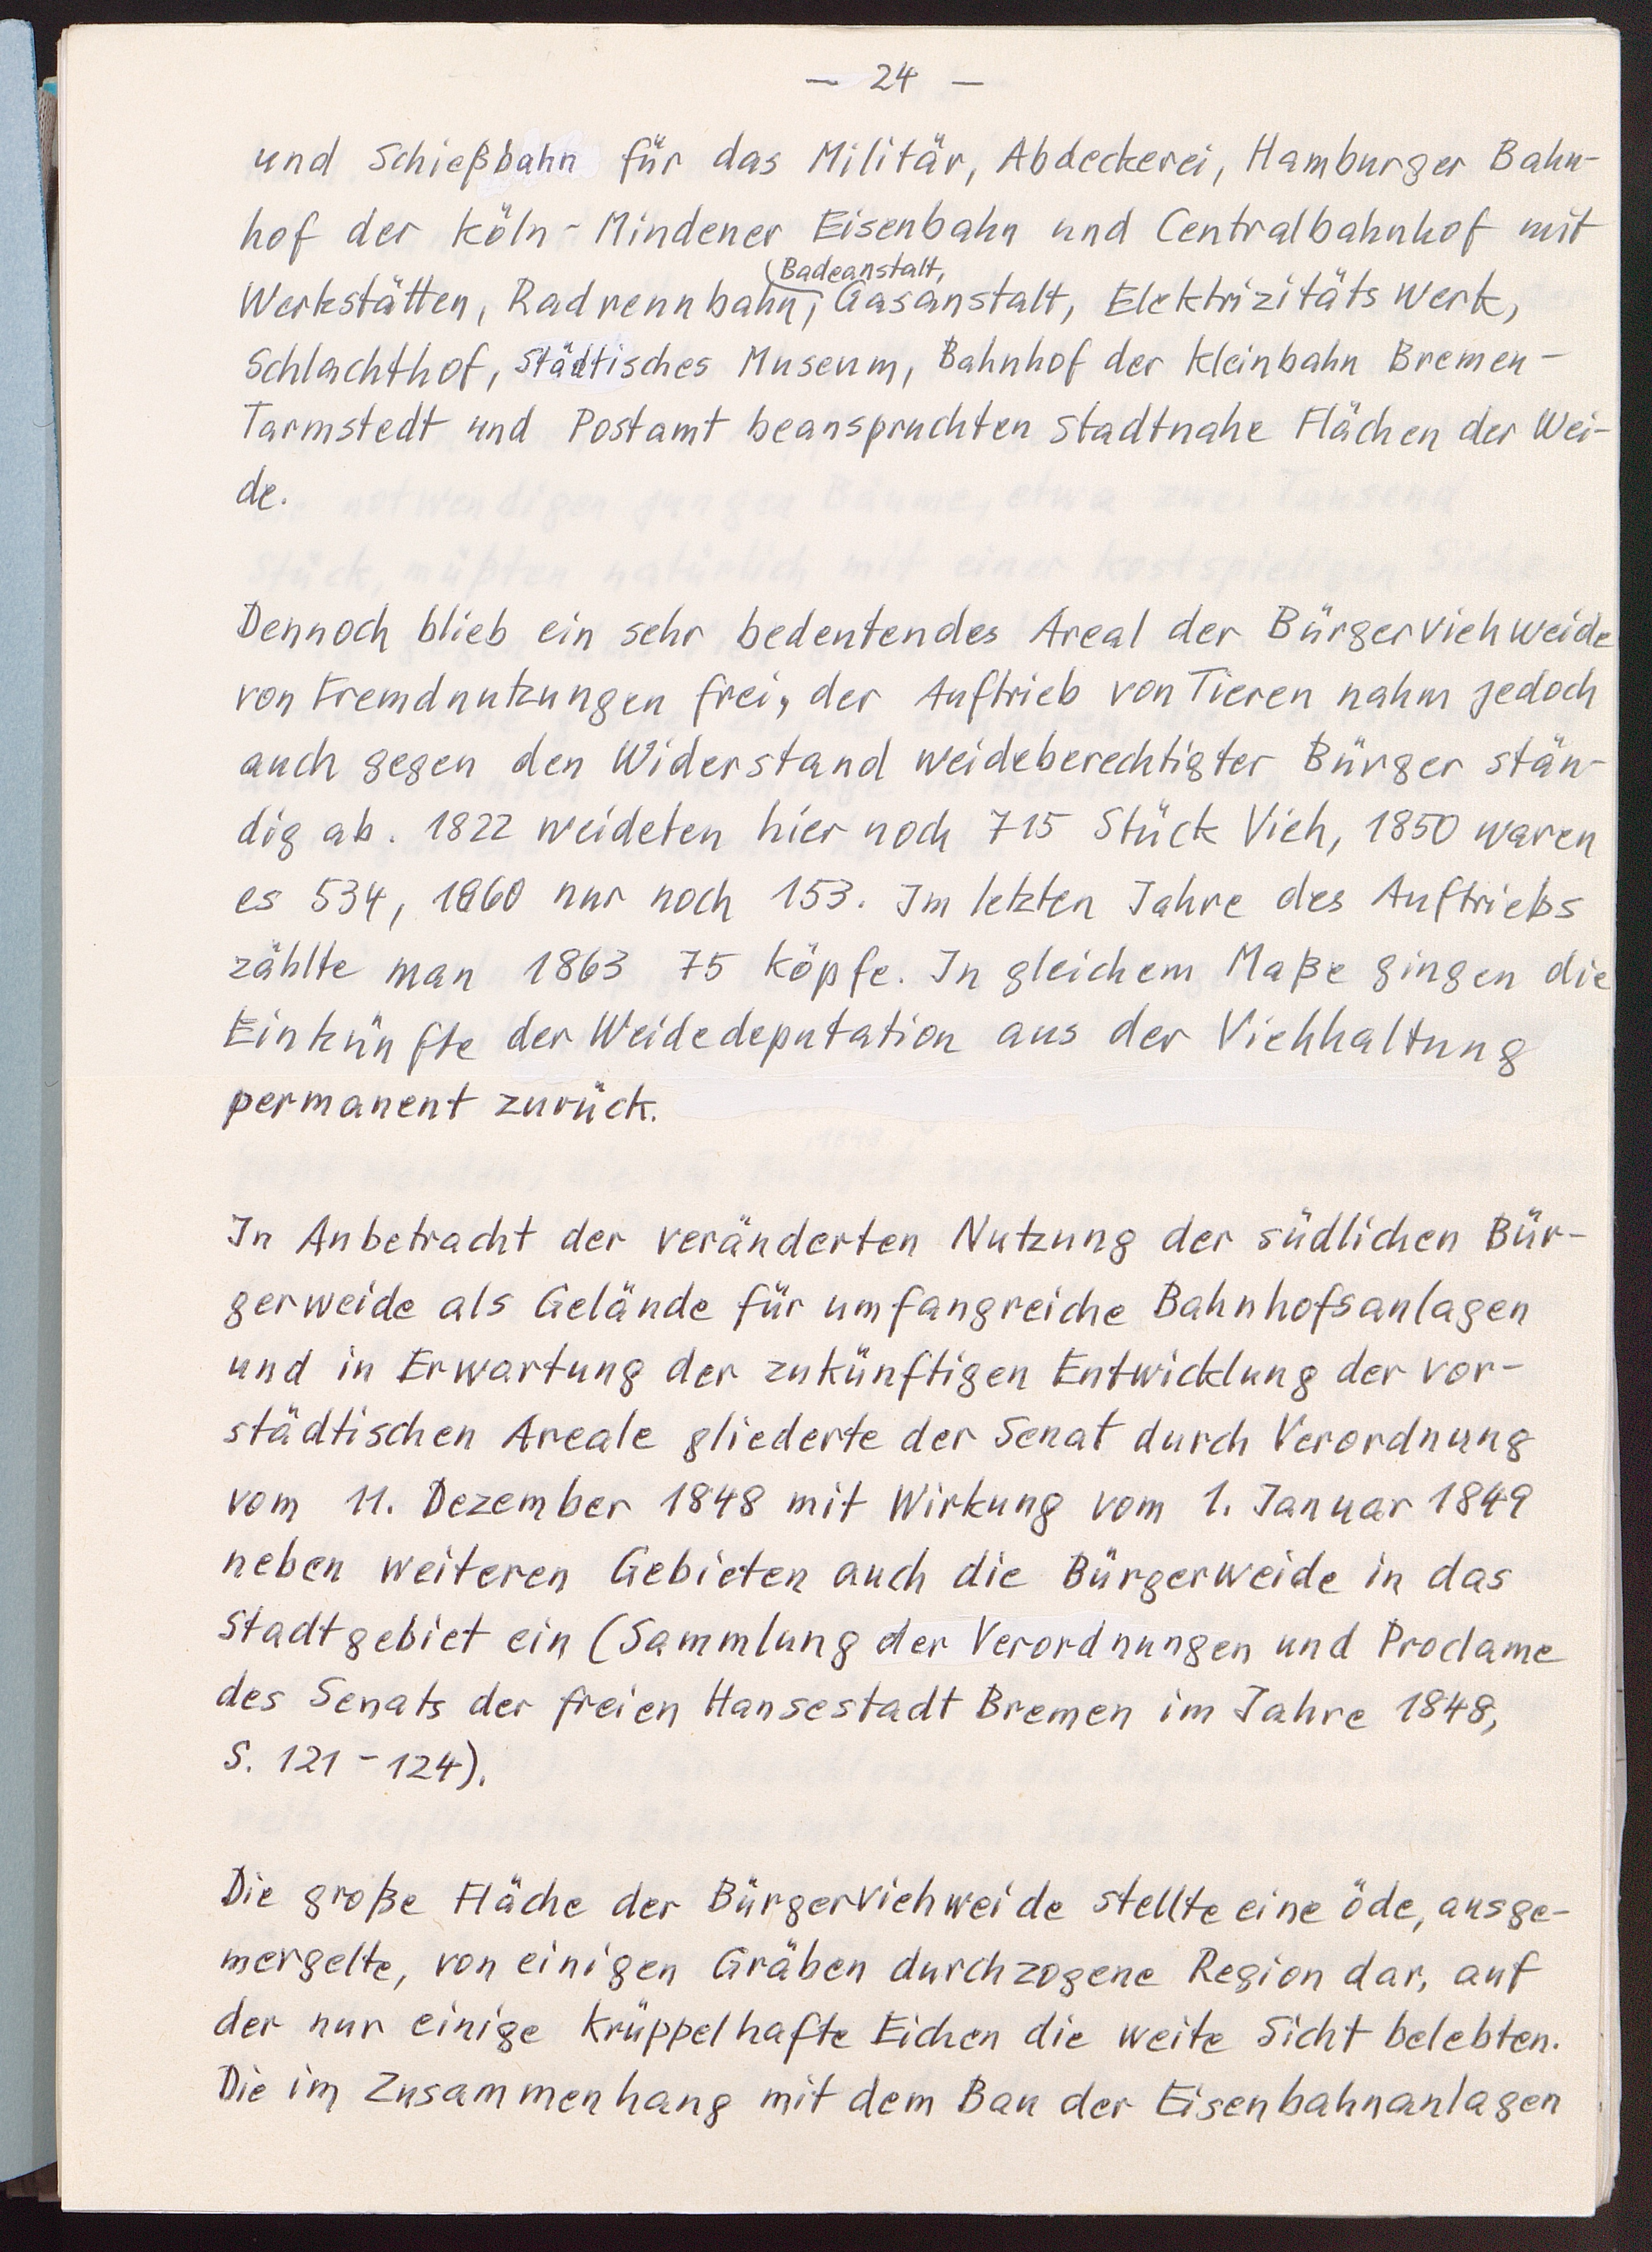 — 24 —
und Schießbahn für das Militär, Abdeckerei, Hamburger Bahn-
hof der Köln-Mindener Eisenbahn und Centralbahnhof mit
Badeanstalt,
Werkstätten, Radrennbahn, Gasanstalt, Elektrizitätswerk,
Schlachthof, Städtisches Museum, Bahnhof der Kleinbahn Bremen-
Tarmstedt und Postamt beanspruchten stadtnahe Flächen der Wei-
de.
Dennoch blieb ein sehr bedeutendes Areal der Bürgerviehweide
von Fremdnutzungen frei, der Auftrieb von Tieren nahm jedoch
auch gegen den Widerstand weideberechtigter Bürger stän-
dig ab. 1822 weideten hier noch 715 Stück Vieh, 1850 waren
es 534, 1860 nur noch 153. Im letzten Jahre des Auftriebs
zählte man 1863 75 Köpfe. In gleichem Maße gingen die
Einkünfte der Weidedeputation aus der Viehhaltung
permanent zurück.
In Anbetracht der veränderten Nutzung der südlichen Bür-
gerweide als Gelände für umfangreiche Bahnhofsanlagen
und in Erwartung der zukünftigen Entwicklung der vor-
städtischen Areale gliederte der Senat durch Verordnung
vom 11. Dezember 1848 mit Wirkung vom 1. Januar 1849
neben weiteren Gebieten auch die Bürgerweide in das
Stadtgebiet ein (Sammlung der Verordnungen und Proclame
des Senats der freien Hansestadt Bremen im Jahre 1848,
S. 121-124).
Die große Fläche der Bürgerviehweide stellte eine öde, ausge-
mergelte, von einigen Gräben durchzogene Region dar, auf
der nur einige krüppelhafte Eichen die weite Sicht belebten.
Die im Zusammenhang mit dem Bau der Eisenbahnanlagen